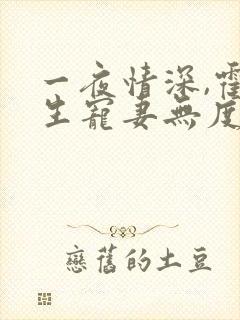 一夜情深,霍
生寵妻無度
戀舊的土豆